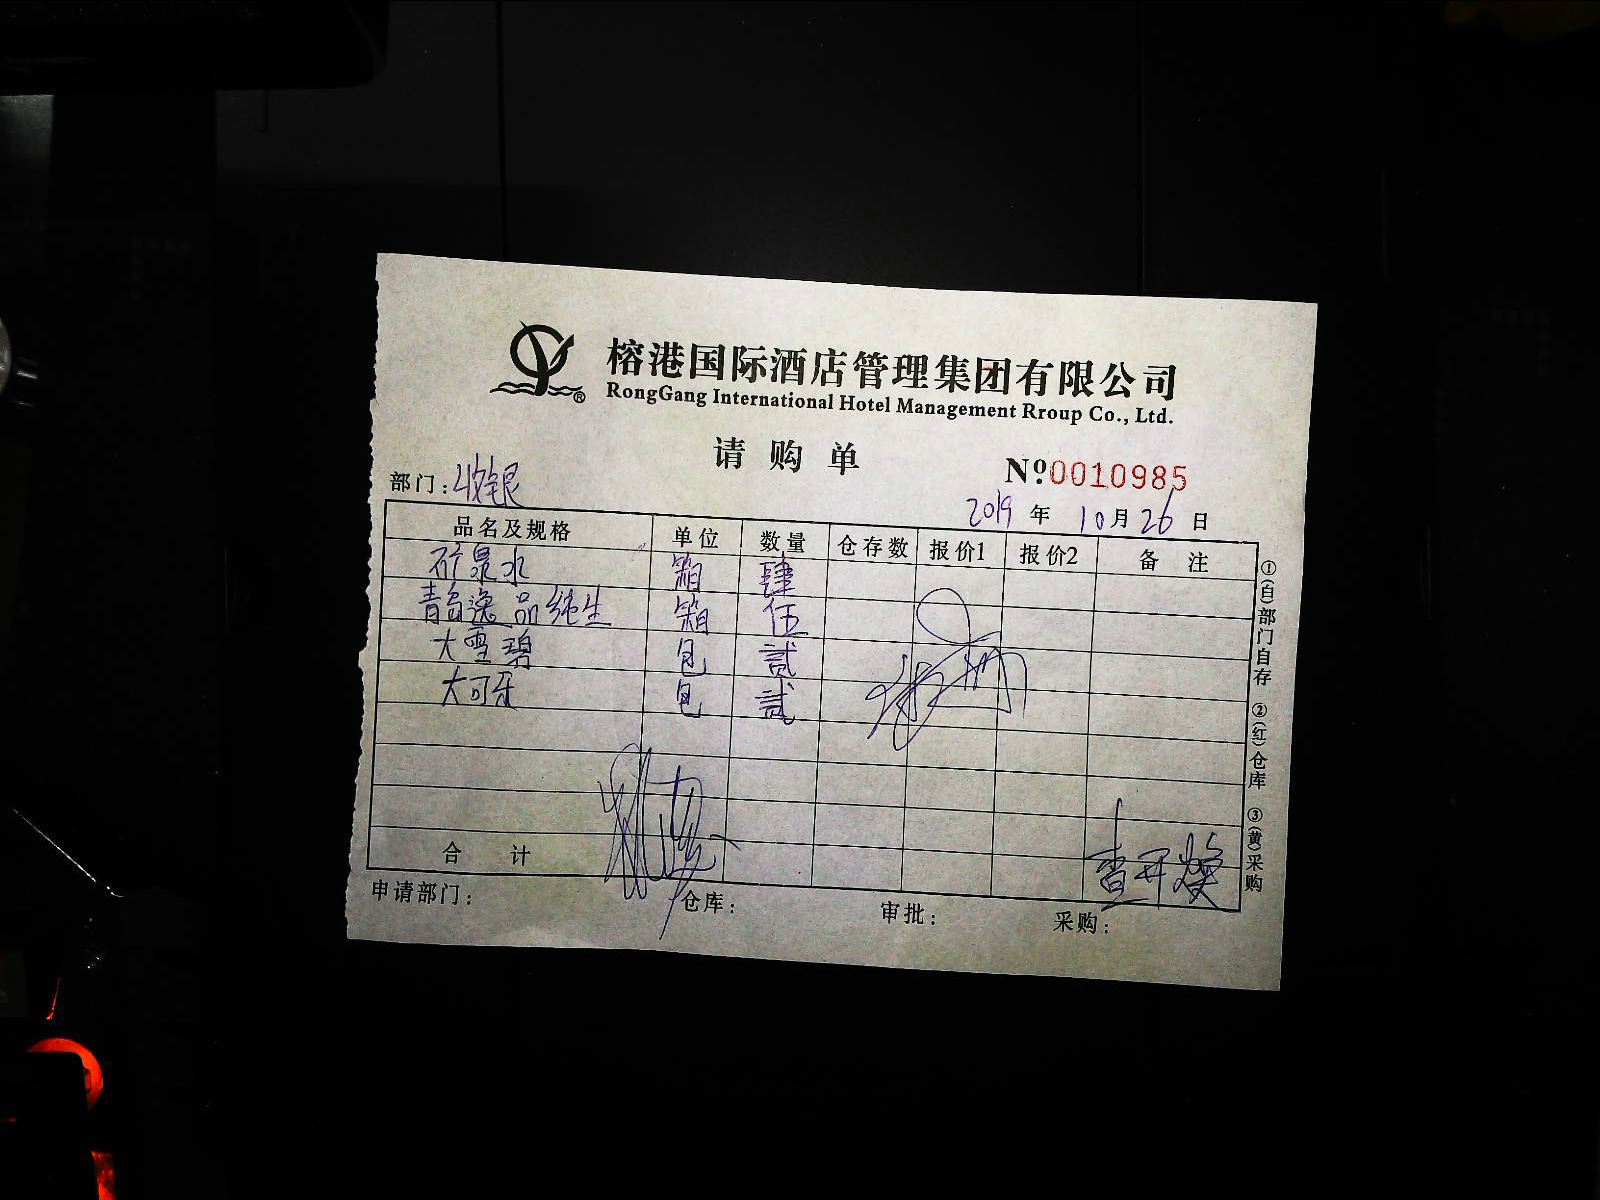 榕港国际酒店管理集团有限公司
RongGang International Hotel Management Rroup Co., Ltd.
®
请购单
№0010985
部门:收银
2019年10月26日
品名及规格 单位 数量 仓存数 报价1 报价2 备注
矿泉水 箱 肆
青岛逸品纯生 箱 伍
大雪碧 包 贰
大可乐 包 贰
合计
申请部门: 仓库: 审批: 采购:
①(自)部门自存 ②(红)仓库 ③(黄)采购